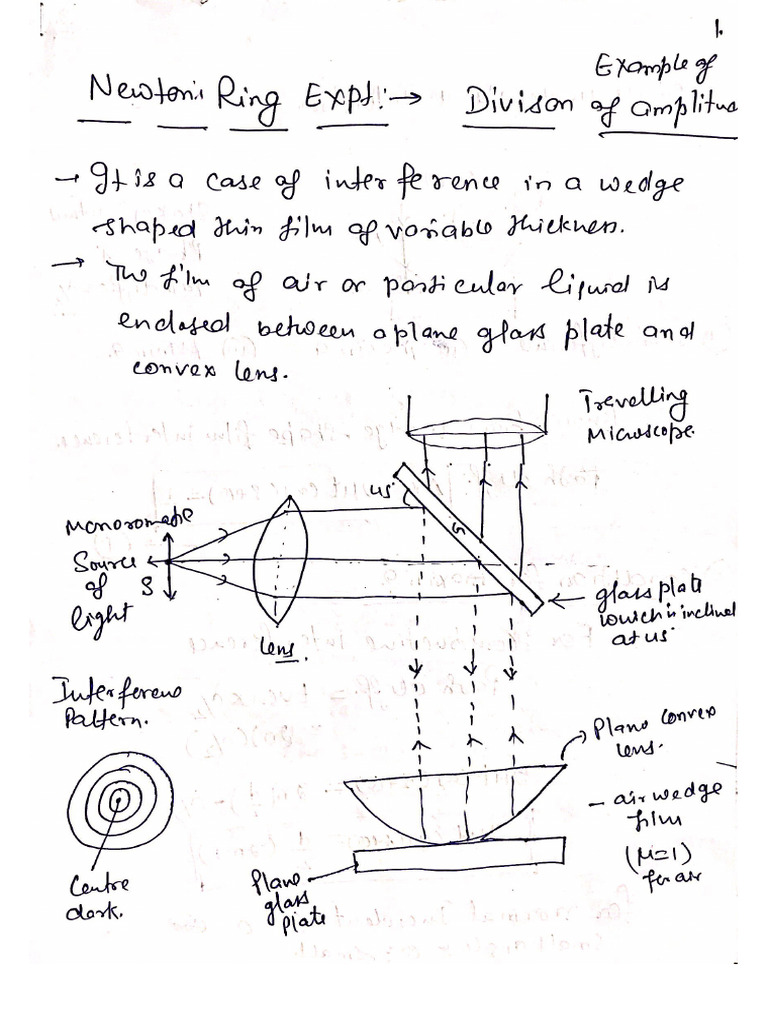 1.
Example of
Newton's Ring Expt:→ Divison of amplitu
→ It is a case of interference in a wedge
shaped thin film of variable thickness.
→ The film of air or particular liquid is
enclosed between a plane glass plate and
convex lens.
Trevelling
Microscope.
45°
G
Monoromatic
Source
of S
light
lens.
glass plate
which is inclined
at 45°
Interference
Pattern.
Plano convex
lens.
- air wedge
film
(μ=1)
for air
Centre
dark.
Plane
glass
plate